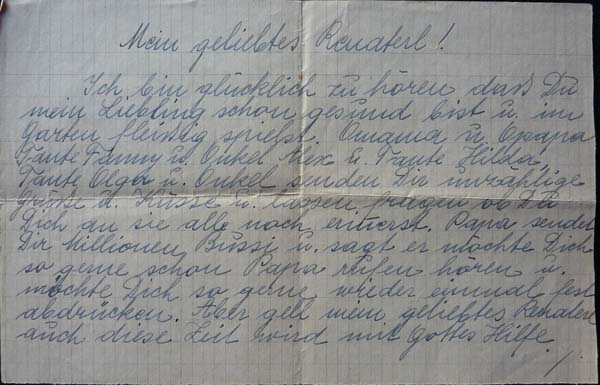 Mein geliebtes Renaterl!
Ich bin glücklich zu hören dass Du
mein Liebling schon gesund bist u. im
Garten fleissig spielst. Omama u. Opapa
Tante Fanny u. Onkel u. Tante Hilda,
Tante Olga u. Onkel senden Dir unzählige
Grüsse u. Küsse u. lassen fragen ob Du
Dich an sie alle noch erinerst. Papa sendet
Dir Millionen Bussi u. sagt er möchte Dich
so gerne schon Papa rufen hören u.
möchte Dich so gerne wieder einmal fest
abdrücken. Aber gell mein geliebtes Renaterl
auch diese Zeit wird mit Gottes Hilfe